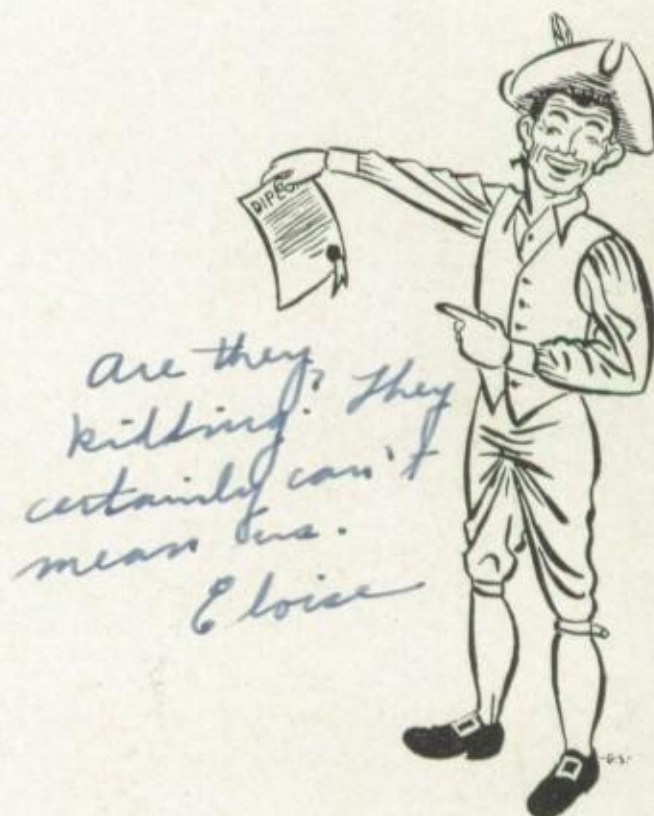 DIPLO
are they
kidding? They
certainly can't
mean us.
Eloise
-G.S.-